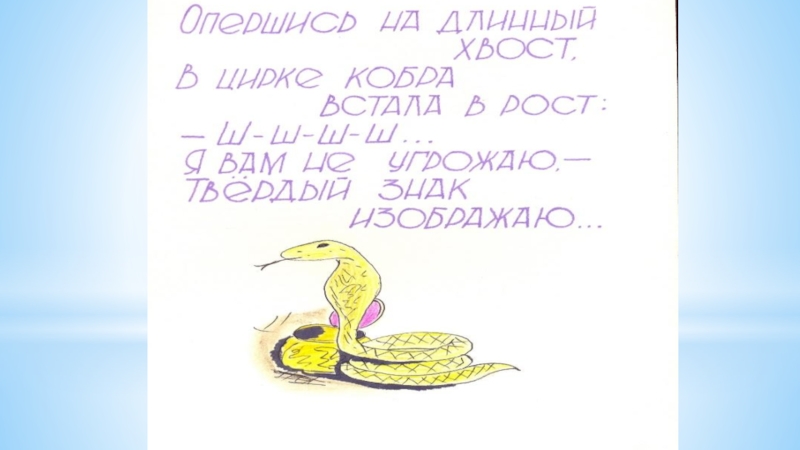 Опершись на длинный
хвост,
В цирке кобра
встала в рост:
— Ш-ш-ш-ш...
Я вам не угрожаю,—
Твёрдый знак
изображаю...